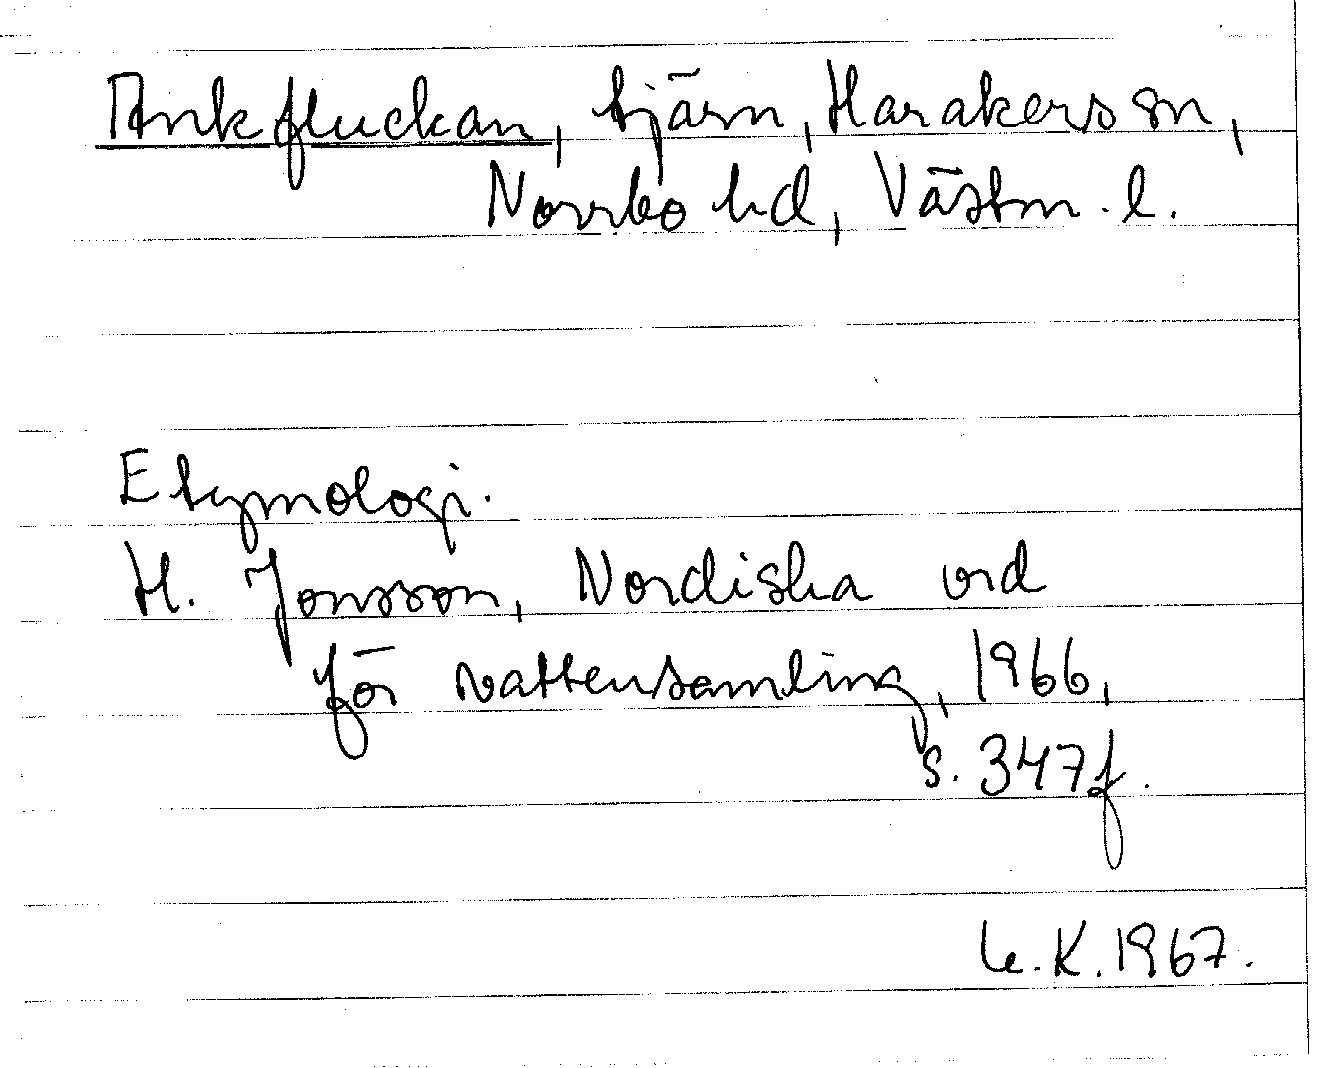 Ankfluckan, tjärn, Harakers sn,
Norrbo hd, Västm. l.
Etymologi.
H. Jonsson, Nordiska ord
för vattensamling, 1966,
s. 347f.
K. 1967.